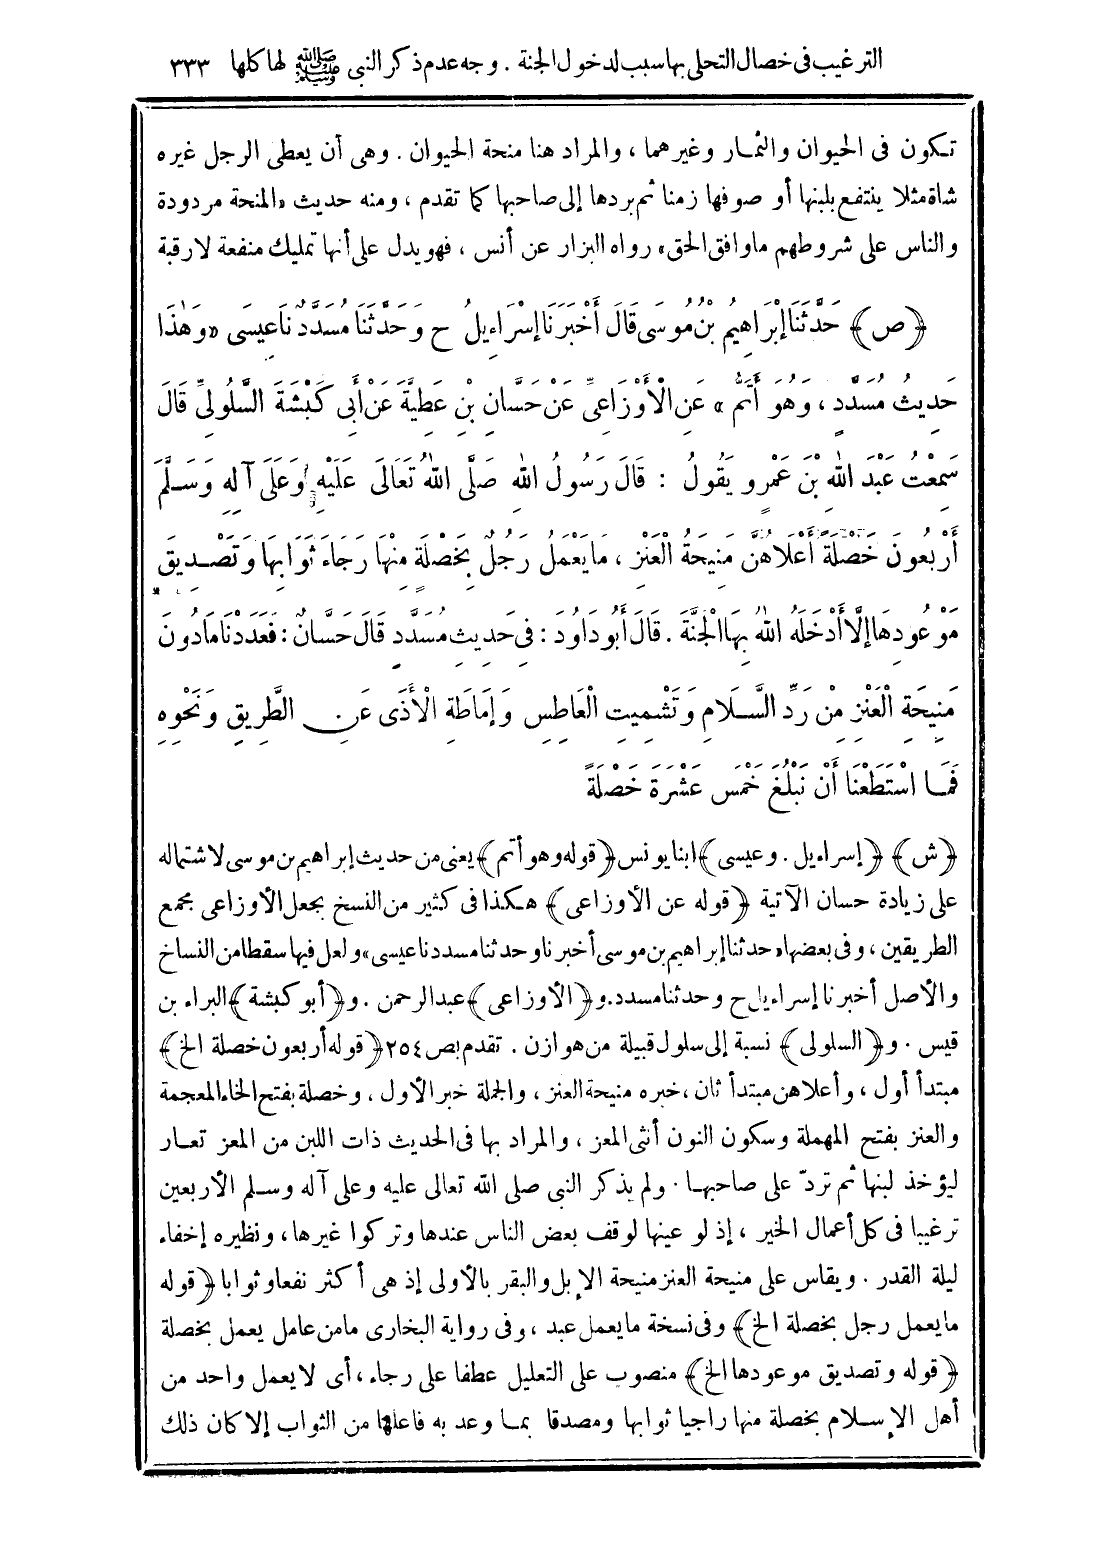 الترغيب فى خصال التحلى بها سبب لدخول الجنة . وجه عدم ذكر النبى ﷺ لها كلها ٣٣٣
تكون فى الحيوان والثمار وغيرهما ، والمراد هنا منحة الحيوان . وهى أن يعطى الرجل غيره
شاة مثلا ينتفع بلبنها أو صوفها زمنا ثم يردها إلى صاحبها كما تقدم ، ومنه حديث «المنحة مردودة
والناس على شروطهم ما وافق الحق» رواه البزار عن أنس ، فهو يدل على أنها تمليك منفعة لا رقبة
﴿ص﴾ حَدَّثَنَا إِبْرَاهِيمُ بْنُ مُوسَى قَالَ أَخْبَرَنَا إِسْرَاءِيلُ ح وَحَدَّثَنَا مُسَدَّدٌ نَا عِيسَى «وَهٰذَا
حَدِيثُ مُسَدَّدٍ ، وَهُوَ أَتَمُّ» عَنِ الْأَوْزَاعِىِّ عَنْ حَسَّانِ بْنِ عَطِيَّةَ عَنْ أَبِى كَبْشَةَ السَّلُولِىِّ قَالَ
سَمِعْتُ عَبْدَ اللهِ بْنَ عَمْرٍو يَقُولُ : قَالَ رَسُولُ اللهِ صَلَّى اللهُ تَعَالَى عَلَيْهِ وَعَلَى آلِهِ وَسَلَّمَ
أَرْبَعُونَ خَصْلَةً أَعْلَاهُنَّ مَنِيحَةُ الْعَنْزِ ، مَا يَعْمَلُ رَجُلٌ بِخَصْلَةٍ مِنْهَا رَجَاءَ ثَوَابِهَا وَتَصْدِيقَ
مَوْعُودِهَا إِلَّا أَدْخَلَهُ اللهُ بِهَا الْجَنَّةَ . قَالَ أَبُو دَاوُدَ : فِى حَدِيثِ مُسَدَّدٍ قَالَ حَسَّانُ : فَعَدَدْنَا مَا دُونَ
مَنِيحَةِ الْعَنْزِ مِنْ رَدِّ السَّلَامِ وَتَشْمِيتِ الْعَاطِسِ وَإِمَاطَةِ الْأَذَى عَنِ الطَّرِيقِ وَنَحْوِهِ
فَمَا اسْتَطَعْنَا أَنْ نَبْلُغَ خَمْسَ عَشْرَةَ خَصْلَةً
﴿ش﴾ ﴿إسراءيل . وعيسى﴾ ابنا يونس ﴿قوله وهو أتم﴾ يعنى من حديث إبراهيم بن موسى لاشتماله
على زيادة حسان الآتية ﴿قوله عن الأوزاعى﴾ هكذا فى كثير من النسخ بجعل الأوزاعى مجمع
الطريقين ، وفى بعضها «حدثنا إبراهيم بن موسى أخبرنا وحدثنا مسدد نا عيسى» ولعل فيها سقطا من النساخ
والأصل أخبرنا إسراءيل ح وحدثنا مسدد. و﴿الأوزاعى﴾ عبد الرحمن . و﴿أبو كبشة﴾ البراء بن
قيس . و﴿السلولى﴾ نسبة إلى سلول قبيلة من هوازن . تقدم بص ٢٥٤ ﴿قوله أربعون خصلة الخ﴾
مبتدأ أول ، وأعلاهن مبتدأ ثان ، خبره منيحة العنز ، والجملة خبر الأول ، وخصلة بفتح الخاء المعجمة
والعنز بفتح المهملة وسكون النون أنثى المعز ، والمراد بها فى الحديث ذات اللبن من المعز تعار
ليؤخذ لبنها ثم تردّ على صاحبها . ولم يذكر النبى صلى الله تعالى عليه وعلى آله وسلم الأربعين
ترغيبا فى كل أعمال الخير ، إذ لو عينها لوقف بعض الناس عندها وتركوا غيرها ، ونظيره إخفاء
ليلة القدر . ويقاس على منيحة العنز منيحة الإبل والبقر بالأولى إذ هى أكثر نفعا وثوابا ﴿قوله
ما يعمل رجل بخصلة الخ﴾ وفى نسخة ما يعمل عبد ، وفى رواية البخارى ما من عامل يعمل بخصلة
﴿قوله وتصديق موعودها الخ﴾ منصوب على التعليل عطفا على رجاء ، أى لا يعمل واحد من
أهل الإسلام بخصلة منها راجيا ثوابها ومصدقا بما وعد به فاعلها من الثواب إلا كان ذلك